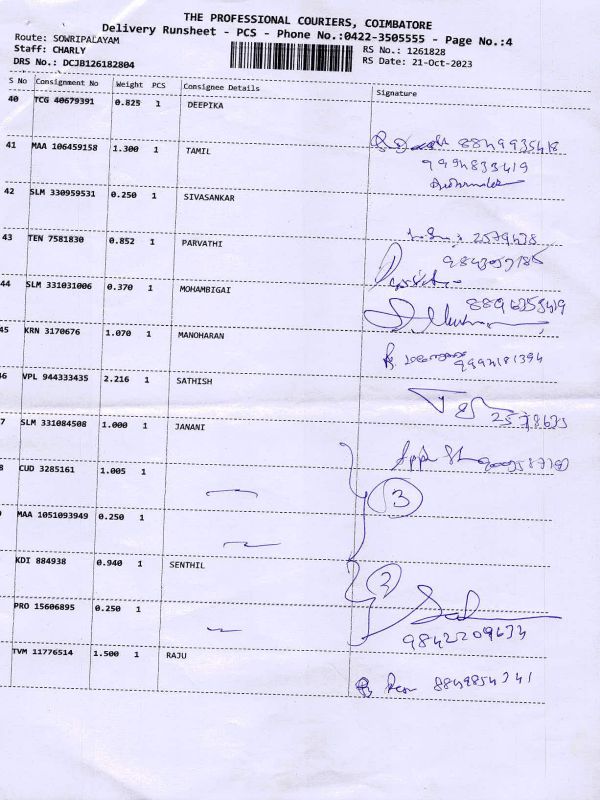 THE PROFESSIONAL COURIERS, COIMBATORE
Delivery Runsheet - PCS - Phone No.:0422-3505555 - Page No.:4
Route: SOWRIPALAYAM RS No.: 1261828
Staff: CHARLY RS Date: 21-Oct-2023
DRS No.: DCJB126182804
S No Consignment No Weight PCS Consignee Details Signature
40 TCG 40679391 0.825 1 DEEPIKA
8849935418
41 MAA 106459158 1.300 1 TAMIL
9994833419
42 SLM 330959531 0.250 1 SIVASANKAR
2579438
43 TEN 7581830 0.852 1 PARVATHI
44 SLM 331031006 0.370 1 MOHAMBIGAI
45 KRN 3170676 1.070 1 MANOHARAN
46 VPL 944333435 2.216 1 SATHISH
7 SLM 331084508 1.000 1 JANANI
8 CUD 3285161 1.005 1
3
MAA 1051093949 0.250 1
KDI 884938 0.940 1 SENTHIL
2
PRO 15606895 0.250 1
9842209634
TVM 11776514 1.500 1 RAJU